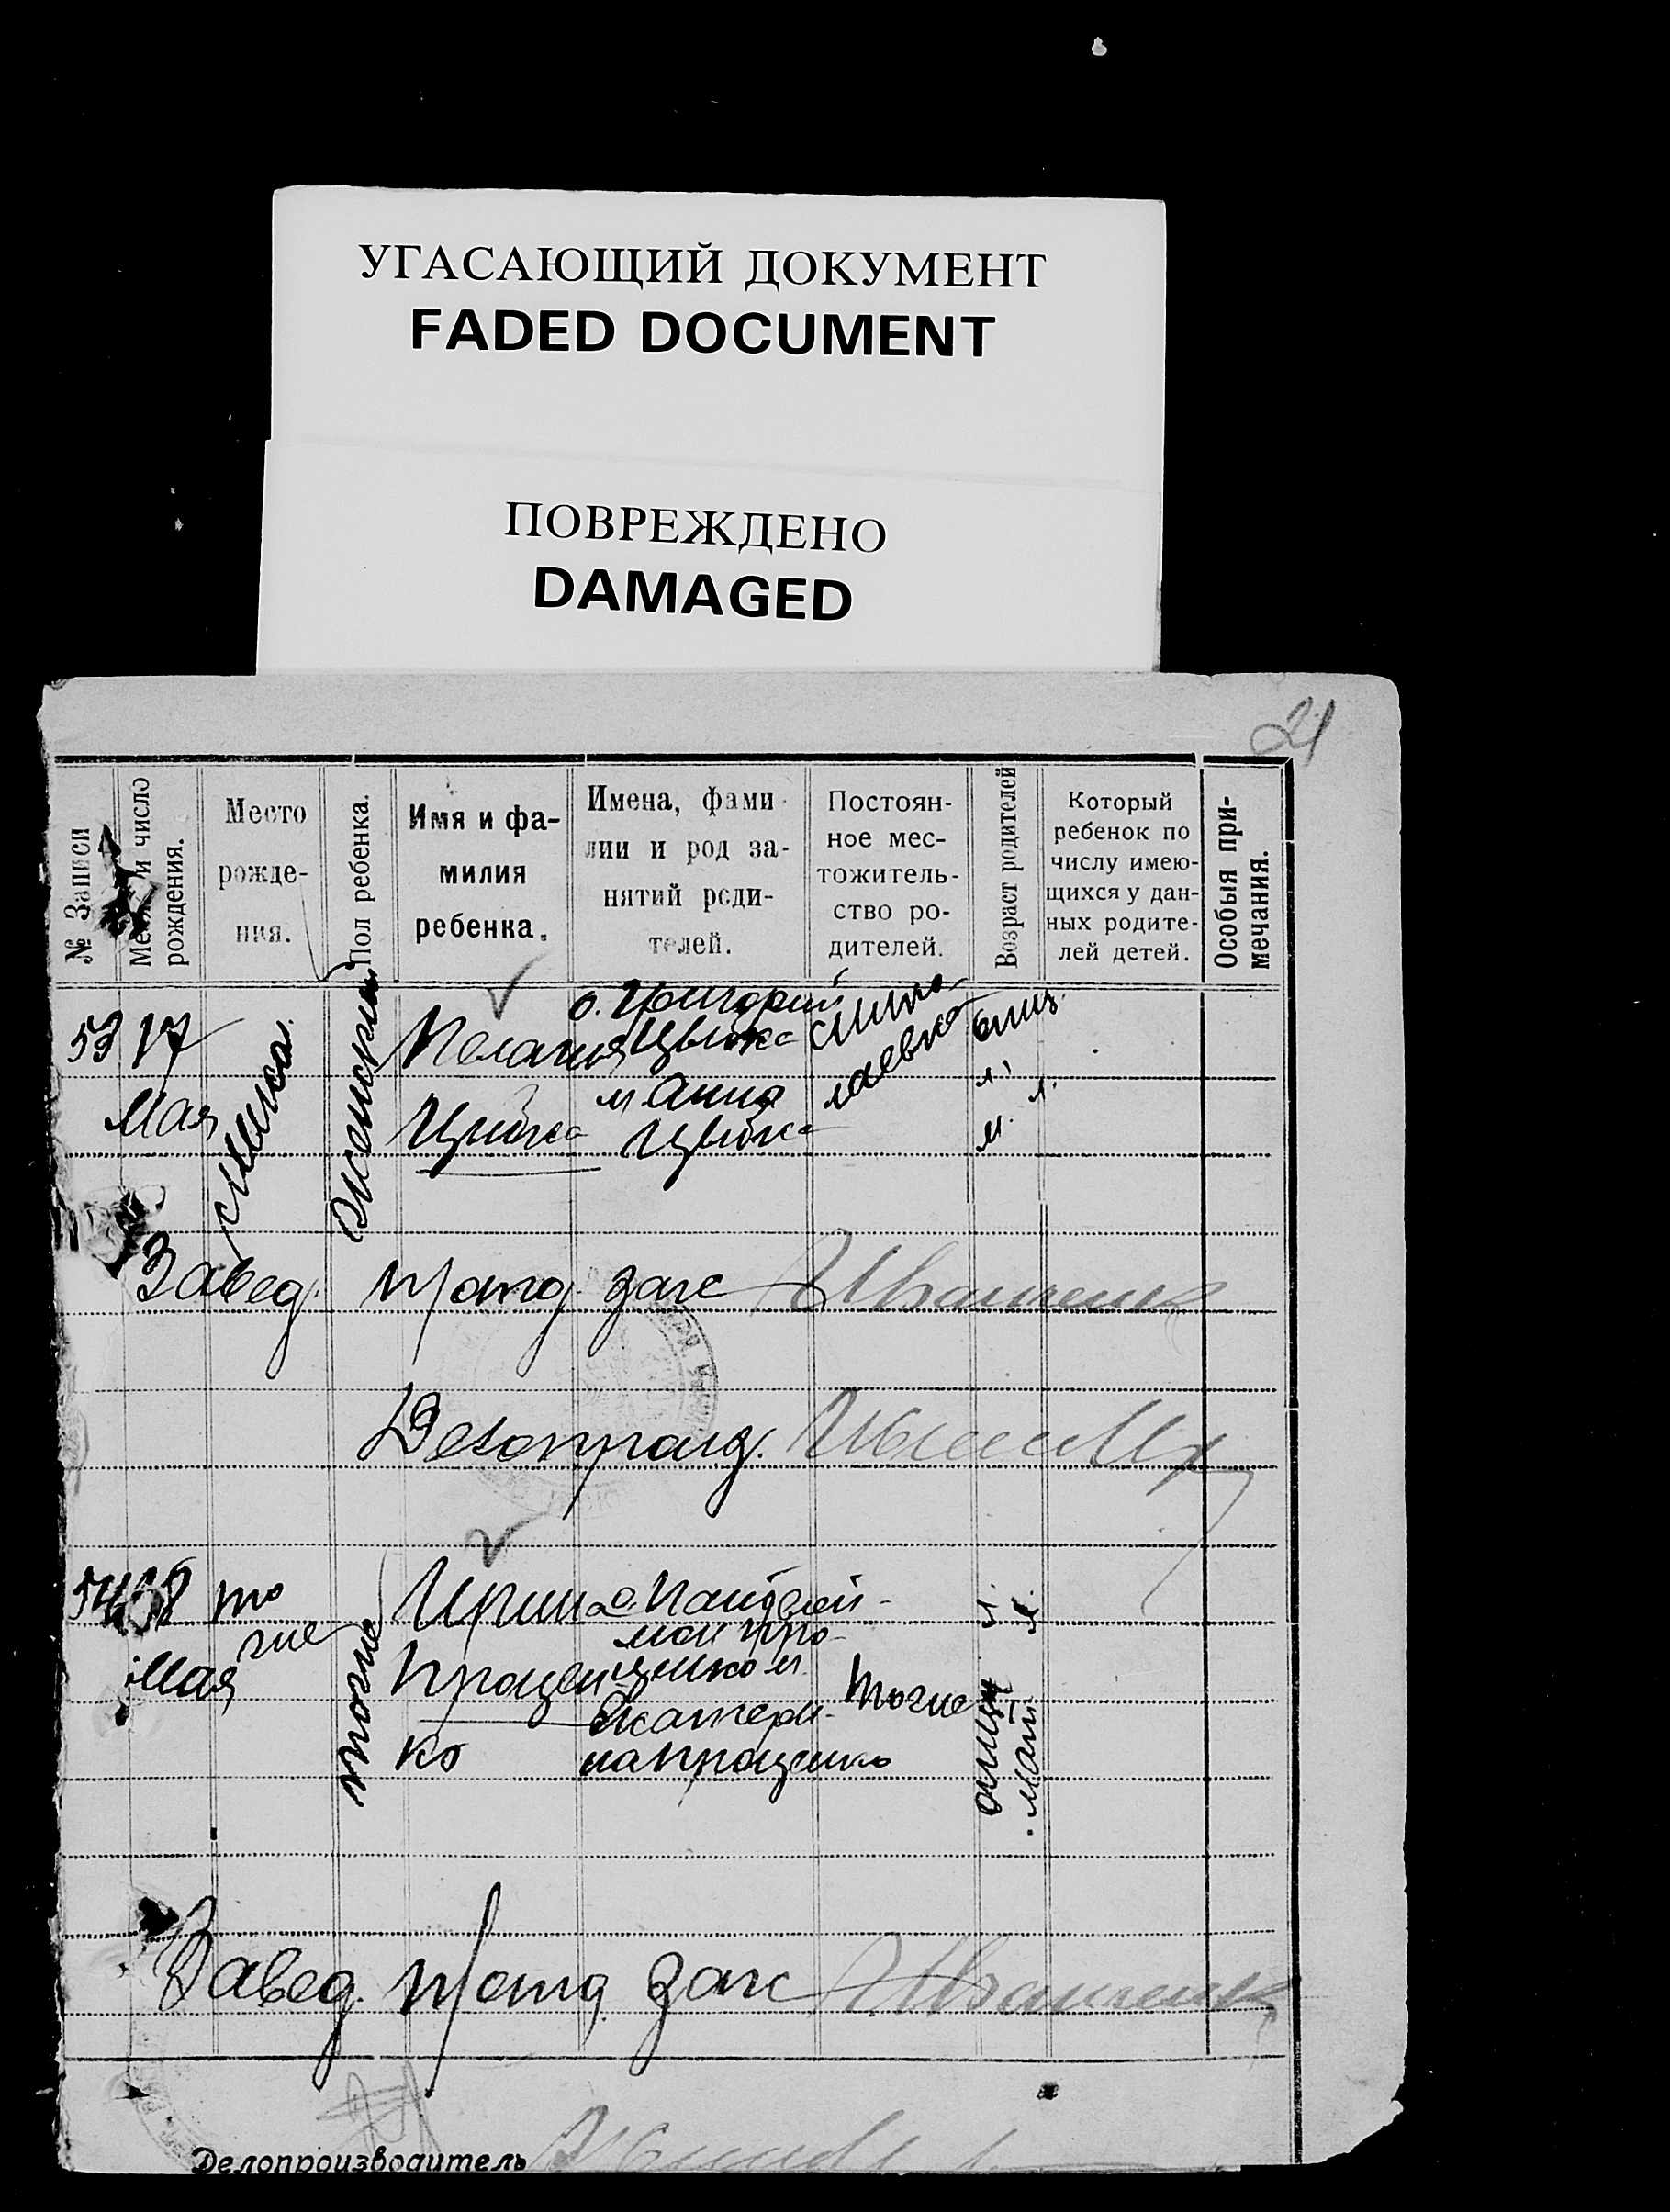 УГАСАЮЩИЙ ДОКУМЕНТ
FADED DOCUMENT
ПОВРЕЖДЕНО
DAMAGED
21
№ Записи
Месяц и число
рождения.
Место
рожде-
ния.
Пол ребенка.
Имя и фа-
милия
ребенка.
Имена, фами-
лии и род за-
нятий роди-
телей.
Постоян-
ное мес-
тожитель-
ство ро-
дителей.
Возраст родителей
Который
ребенок по
числу имею-
щихся у дан-
ных родите-
лей детей.
Особыя при-
мечания.
53
17
Мая
Женский
Пелагия
о. Григорий
м Анна
Завед. п/отд. загс
Делопроизд.
54
18
Мая
то
же
тоже
Ирина
Процен
ко
о. Пантелей-
мон Про-
ценко м.
Екатери-
на Проценко
тоже
Завед. п/отд. загс
Делопроизводитель